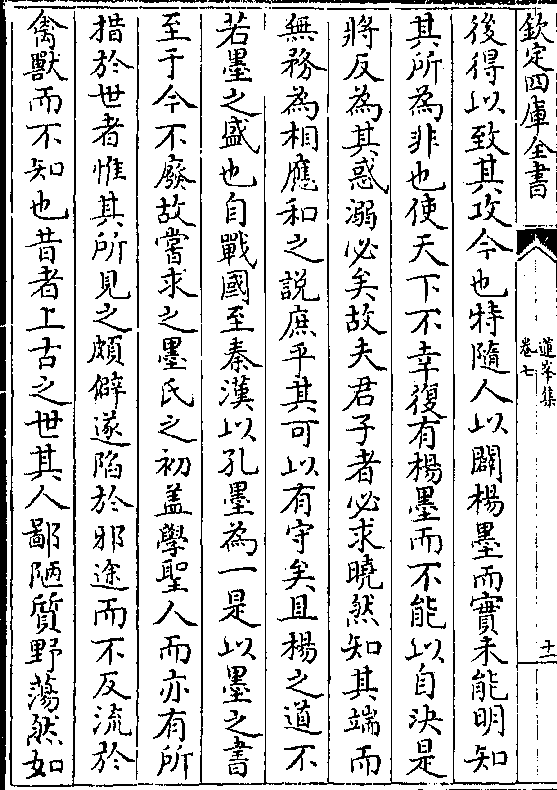 欽定四庫全書
蓮峯集
卷七
十二
後得以致其攻今也特隨人以闢楊墨而實未能明知
其所為非也使天下不幸復有楊墨而不能以自決是
將反為其惑溺必矣故夫君子者必求曉然知其端而
無務為相應和之説庶乎其可以有守矣且楊之道不
若墨之盛也自戰國至秦漢以孔墨為一是以墨之書
至于今不廢故嘗求之墨氏之初盖學聖人而亦有所
措於世者惟其所見之頗僻遂陷於邪途而不反流於
禽獸而不知也昔者上古之世其人鄙陋質野蕩然如